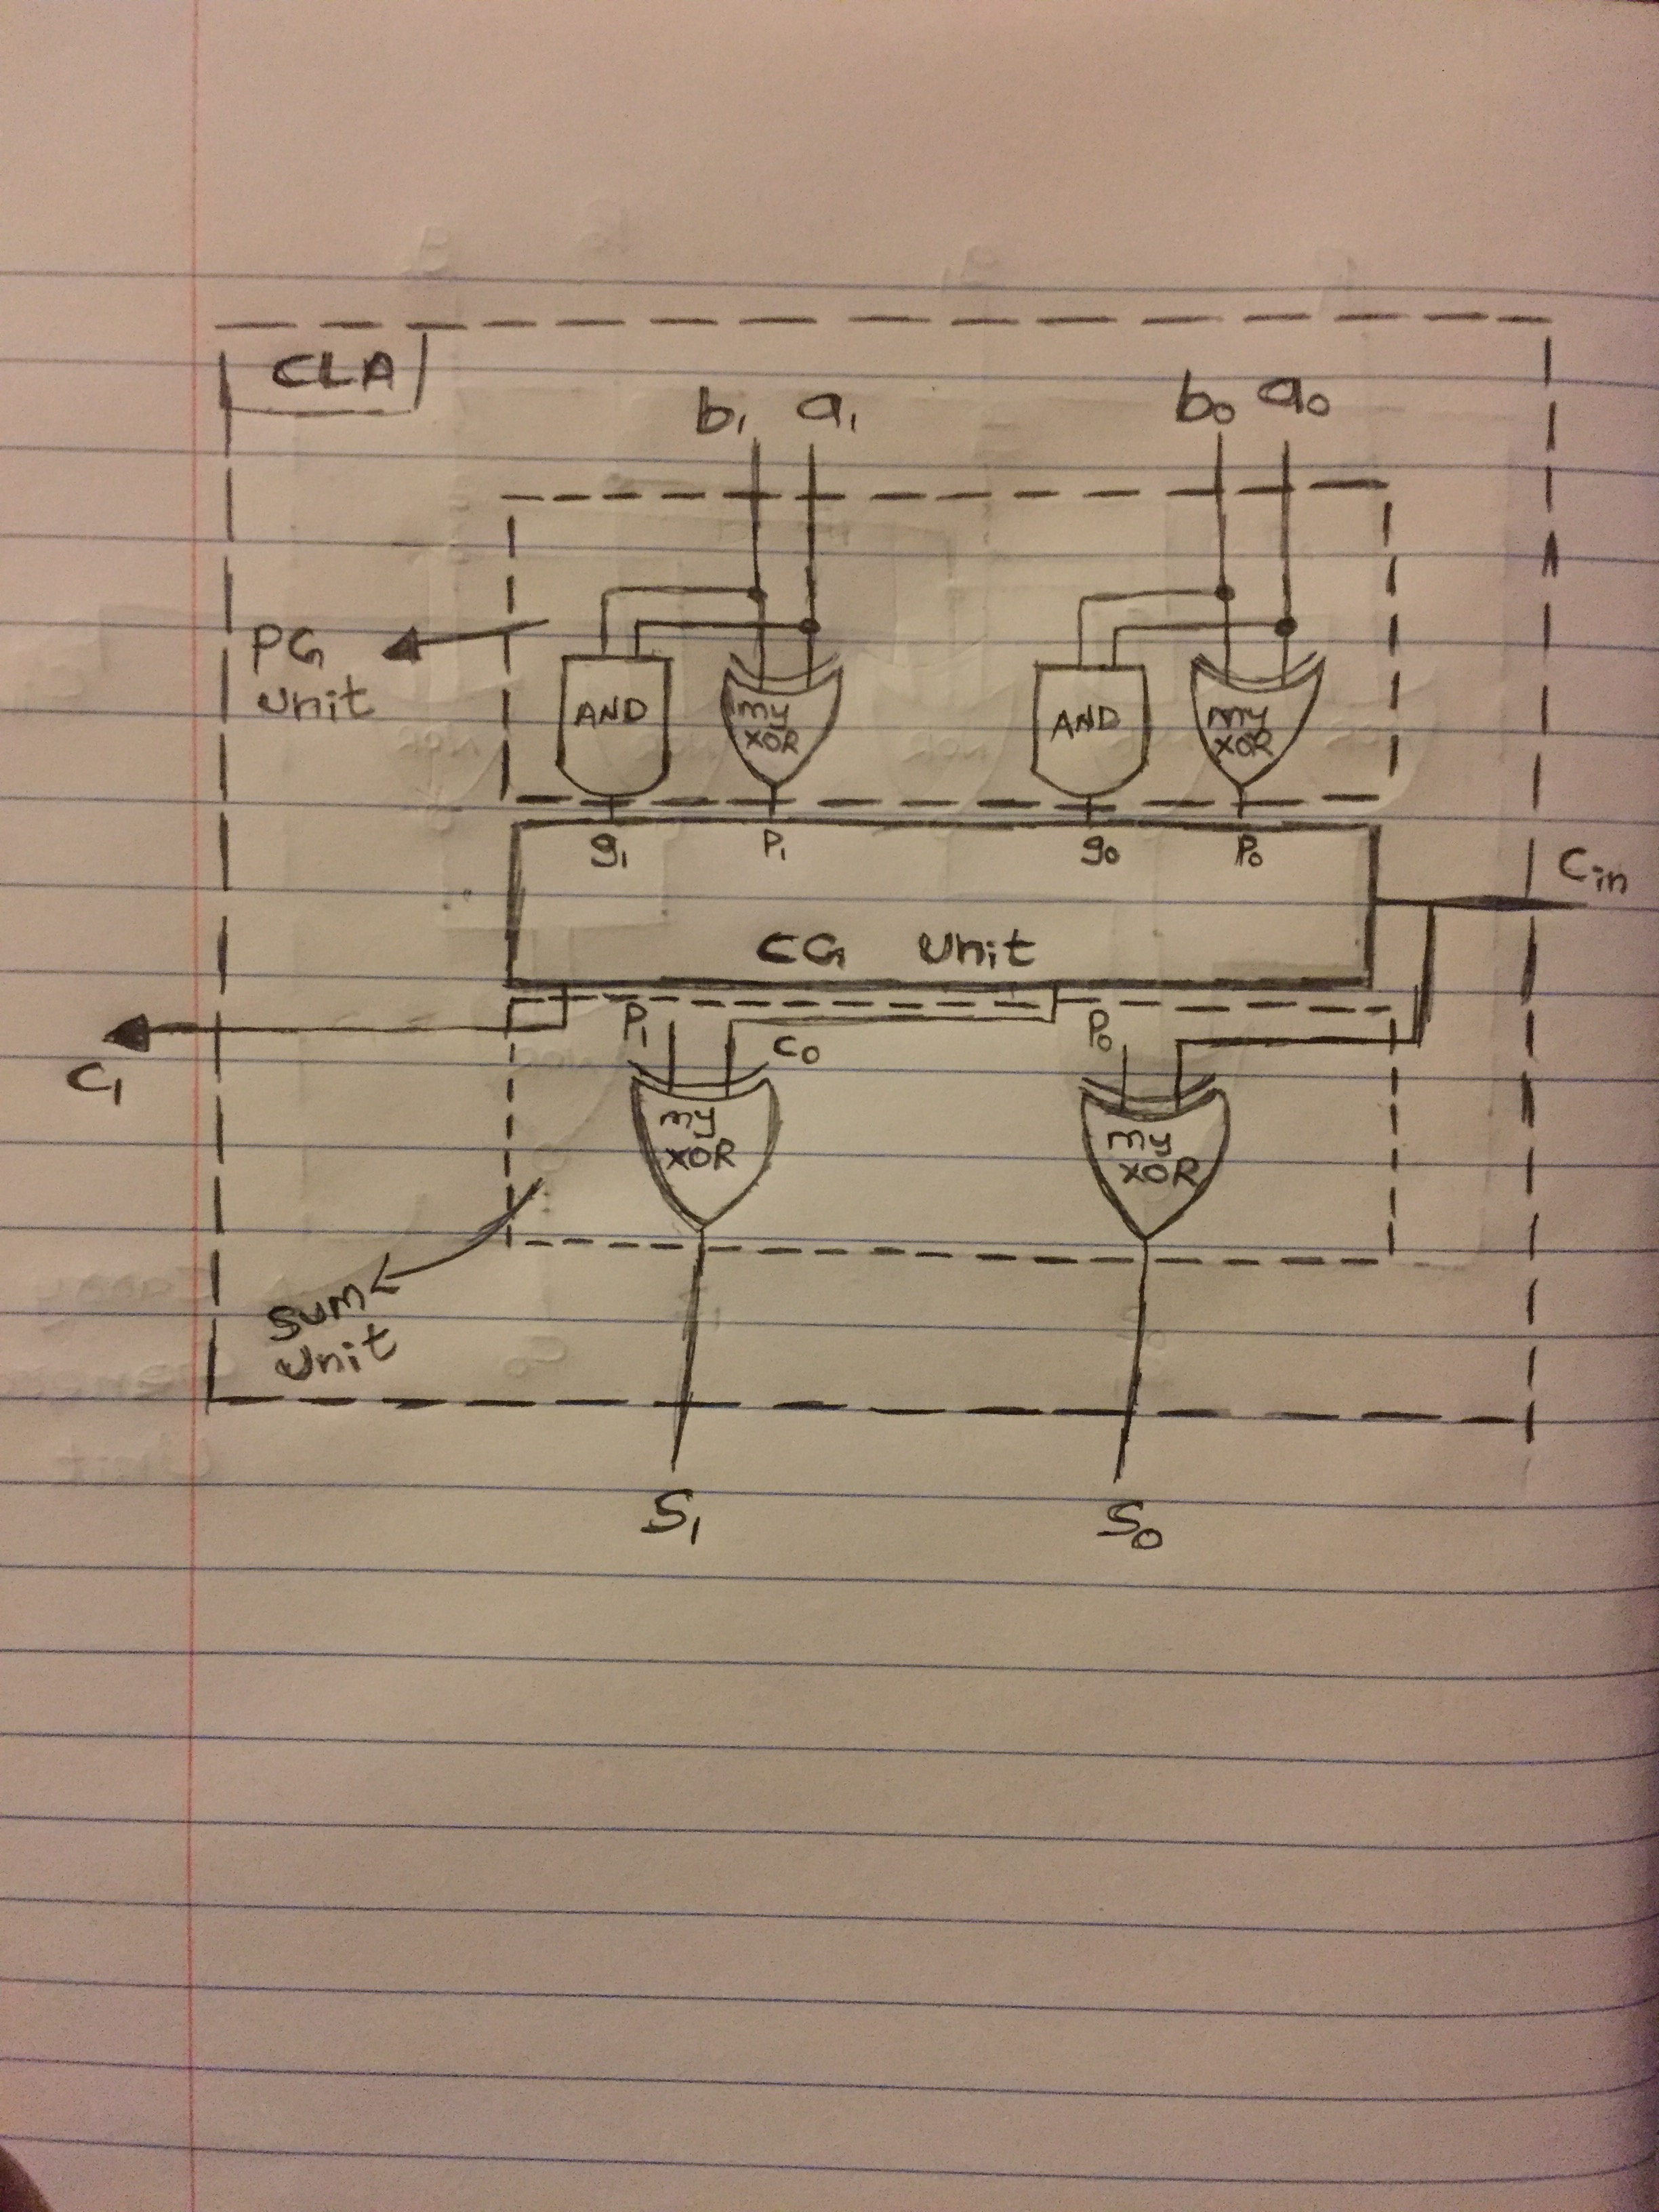 CLA
b₁ a₁ b₀ a₀
PG
unit
AND
my
XOR
AND
my
XOR
g₁ P₁ g₀ P₀
Cin
CG unit
P₁ C₀ P₀
C₁
my
XOR
my
XOR
Sum
Unit
S₁ S₀